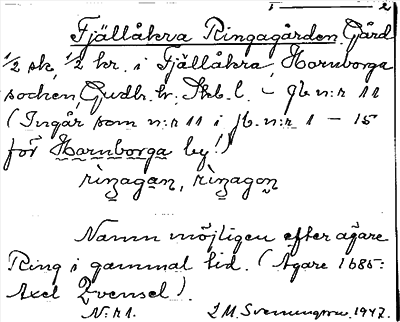 1 — 2
Fjällåkra Ringagården. Gård
1/2 sk, 1/2 kr. i Fjällåkra, Hornborga
socken, Gudh. hr. Skb. l. – jb. n:r 11
(Ingår som n:r 11 i jb. n:r 1 – 15
för Hornborga by!)
rìŋagạn, rìŋagọn
Namn möjligen efter ägare
Ring i gammal tid. (Ägare 1685:
Axel Qvensel).
N:r 1. I. M. Svenungson. 1947.